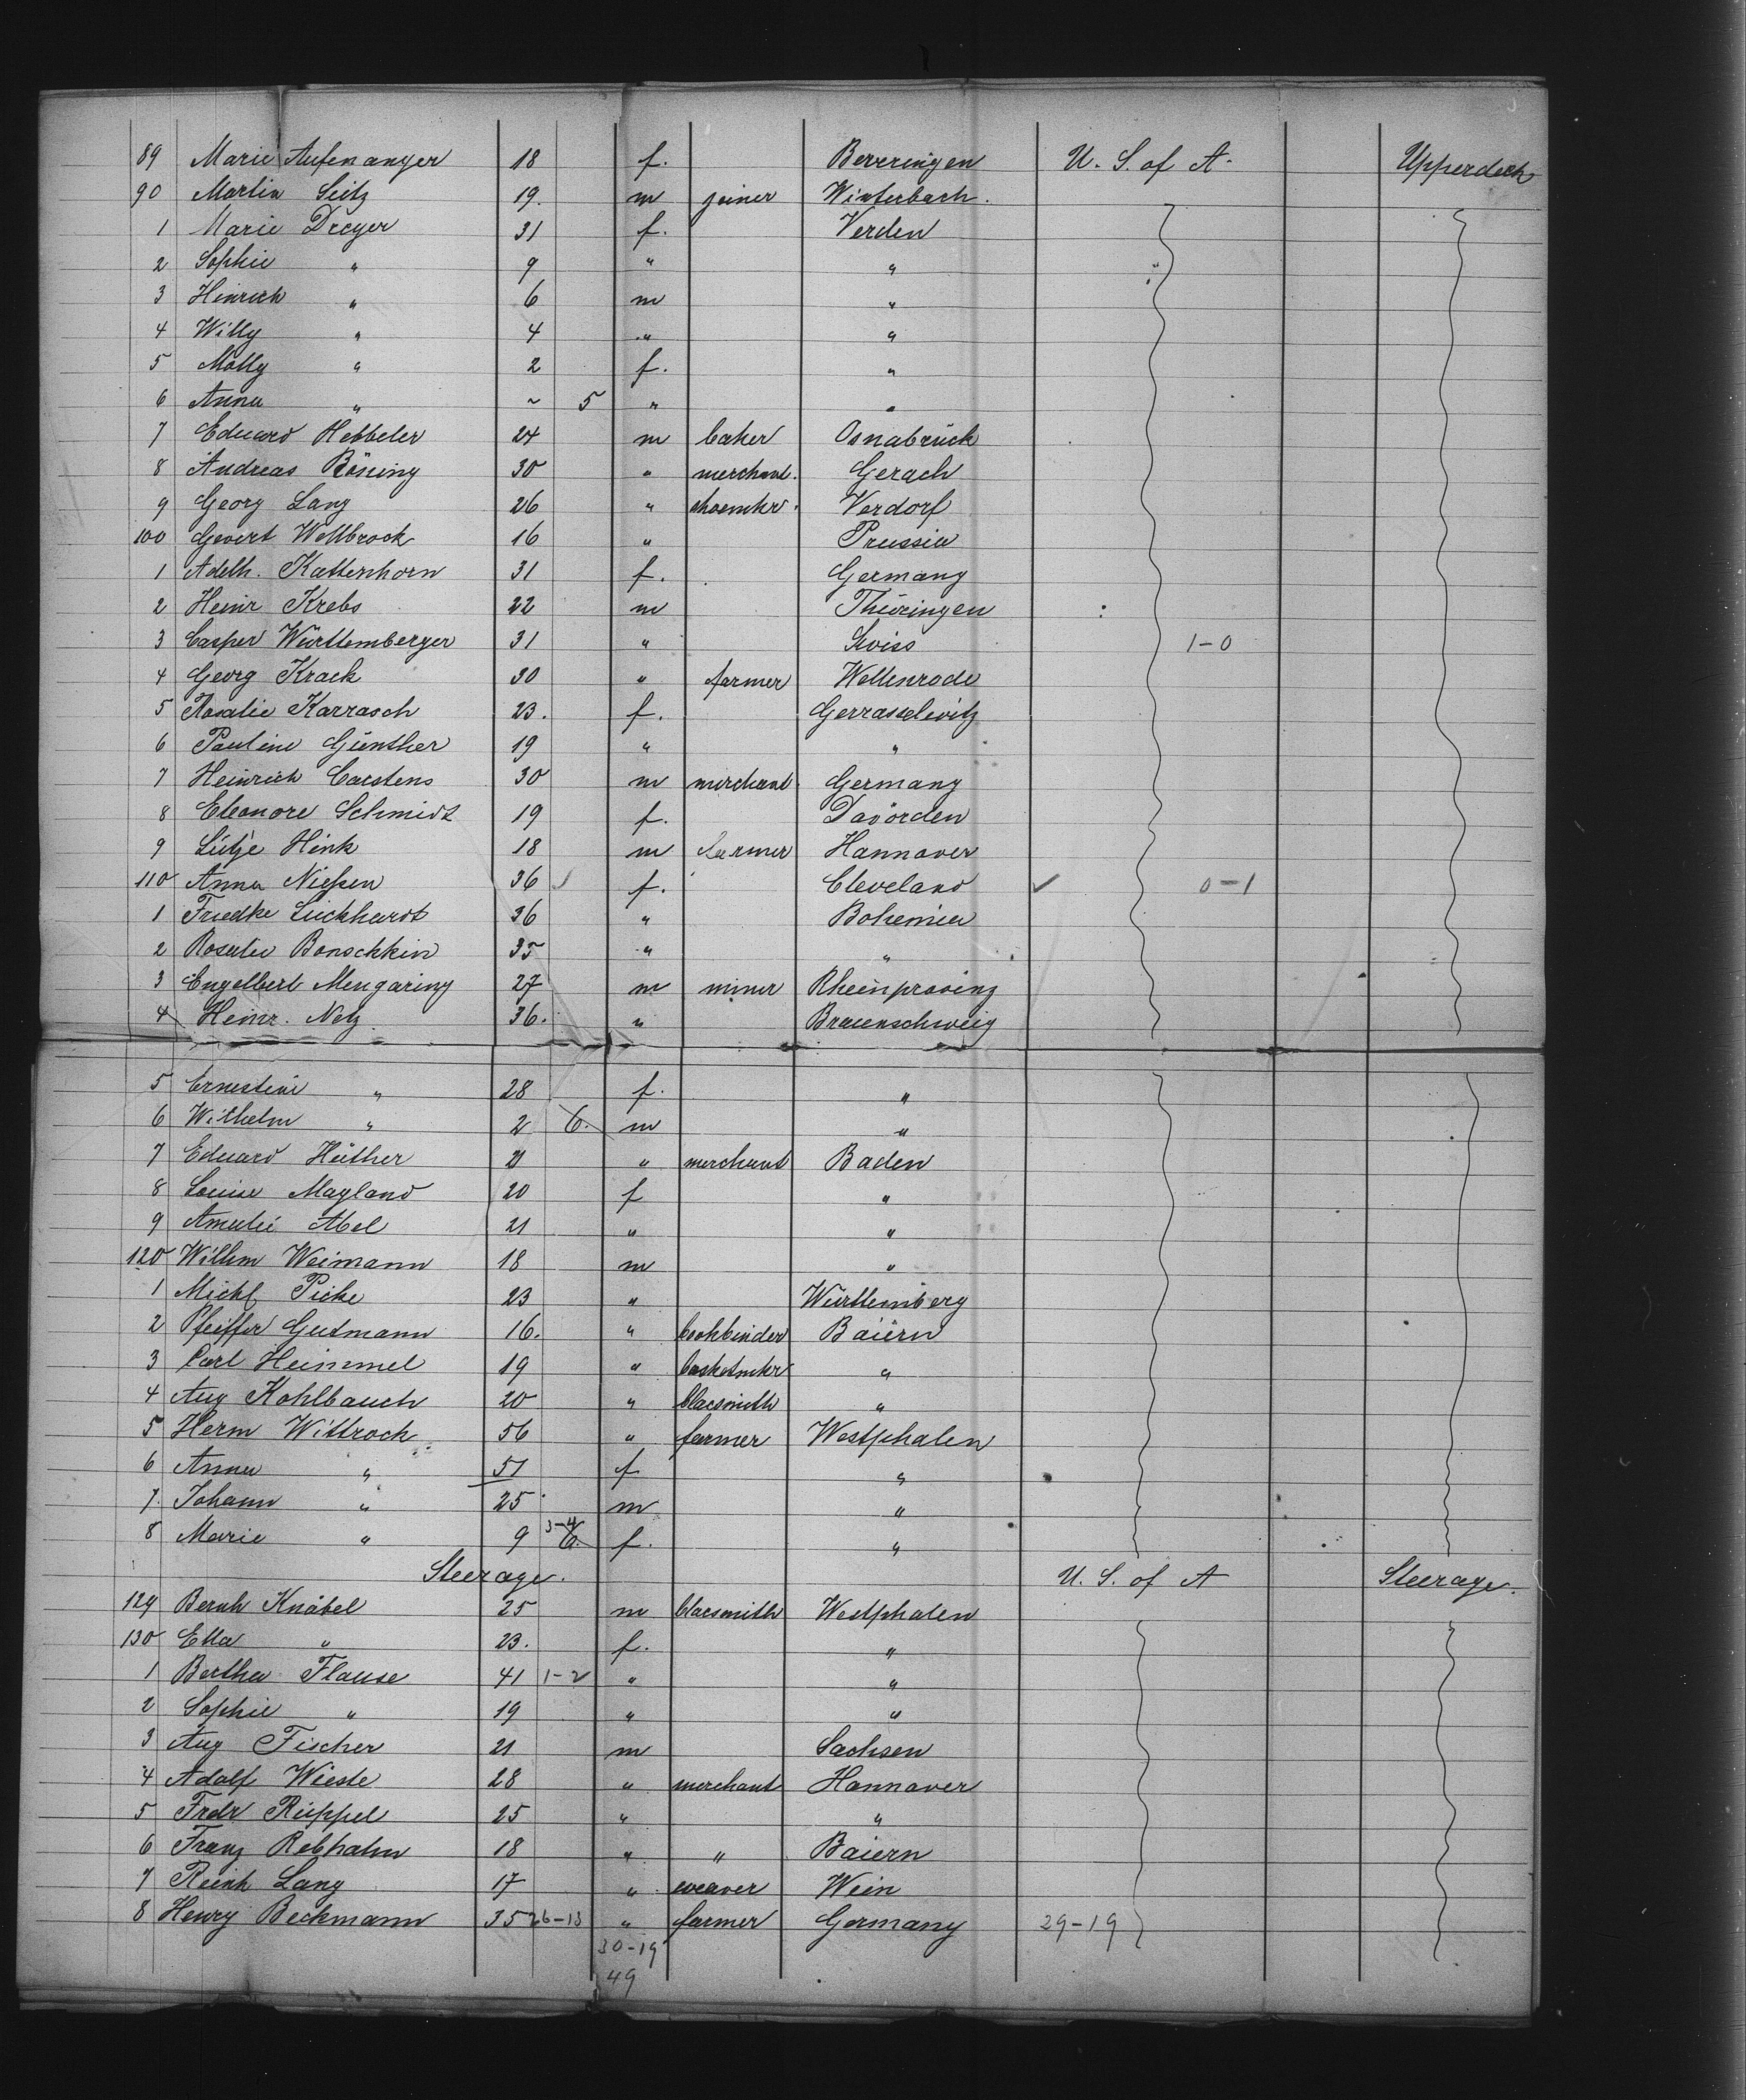 89 Marie Aufenanger 18 f. Beverringen U. S. of A. Upperdeck
90 Martin Seitz 19. m joiner Winterbach.
1 Marie Dreyer 31 f. Verden
2 Sophie " 9 " "
3 Hinrich " 6 m "
4 Willy " 4 " "
5 Molly " 2 f. "
6 Anna " ~ 5 " "
7 Eduard Hebbeler 24 m baker Osnabrück
8 Andreas Böning 30 " merchant. Gerach
9 Georg Lang 26 " shoemkr. Verdorf
100 Gevert Wellbrock 16 " Prussia
1 Adelh. Kattenhorn 31 f. Germany
2 Heinr Krebs 22 m Thüringen
3 Casper Württemberger 31 " Swiss 1-0
4 Georg Krack 30 " farmer Wellenrode
5 Rosalie Karrasch 23. f. Gerrasselwitz
6 Pauline Günther 19 " "
7 Heinrich Carstens 30 m merchant. Germany
8 Eleonore Schmidt 19 f. Davörden
9 Lütje Hink 18 m farmer Hannover
110 Anna Nießen 36 ✓ f. Cleveland ✓ 0-1
1 Friedke Luckhardt 36 " Bohemia
2 Rosalie Bonschkin 35 " "
3 Engelbert Mengaring 27 m miner Rheinproving
4 Heinr. Netz 36. " Braunschweig
5 Ernestine " 28 f. "
6 Wilhelm " 2 6. m "
7 Eduard Hüther 21 " merchant Baden
8 Louise Mayland 20 f "
9 Amalie Abel 21 " "
120 Willm Weimann 18 m "
1 Michl Picke 23 " Württemberg
2 Pfeiffer Gutmann 16. " bookbinder Baiern
3 Carl Heimmel 19 " basketmkr "
4 Aug Kohlbauch 20 " blacsmith "
5 Herm Wittrock 56 " farmer Westphalen
6 Anna " 51 f "
7. Johann " 25 m "
8 Marie " 9 3-4 6. f. "
Steerage. U. S. of A Steerage.
129 Bernh Knäbel 25 m blacsmith Westphalen
130 Ella " 23. f. "
1 Bertha Flause 41 1-2 " "
2 Sophie " 19 " "
3 Aug Fischer 21 m Sachsen
4 Adolf Wieste 28 " merchant Hannover
5 Fredr Rüppel 25 " "
6 Franz Rebhahn 18 " " Baiern
7 Reinh Lang 17 " weaver Wein
8 Henry Beckmann 35 26-13 " farmer Germany 29-19
30-19
49